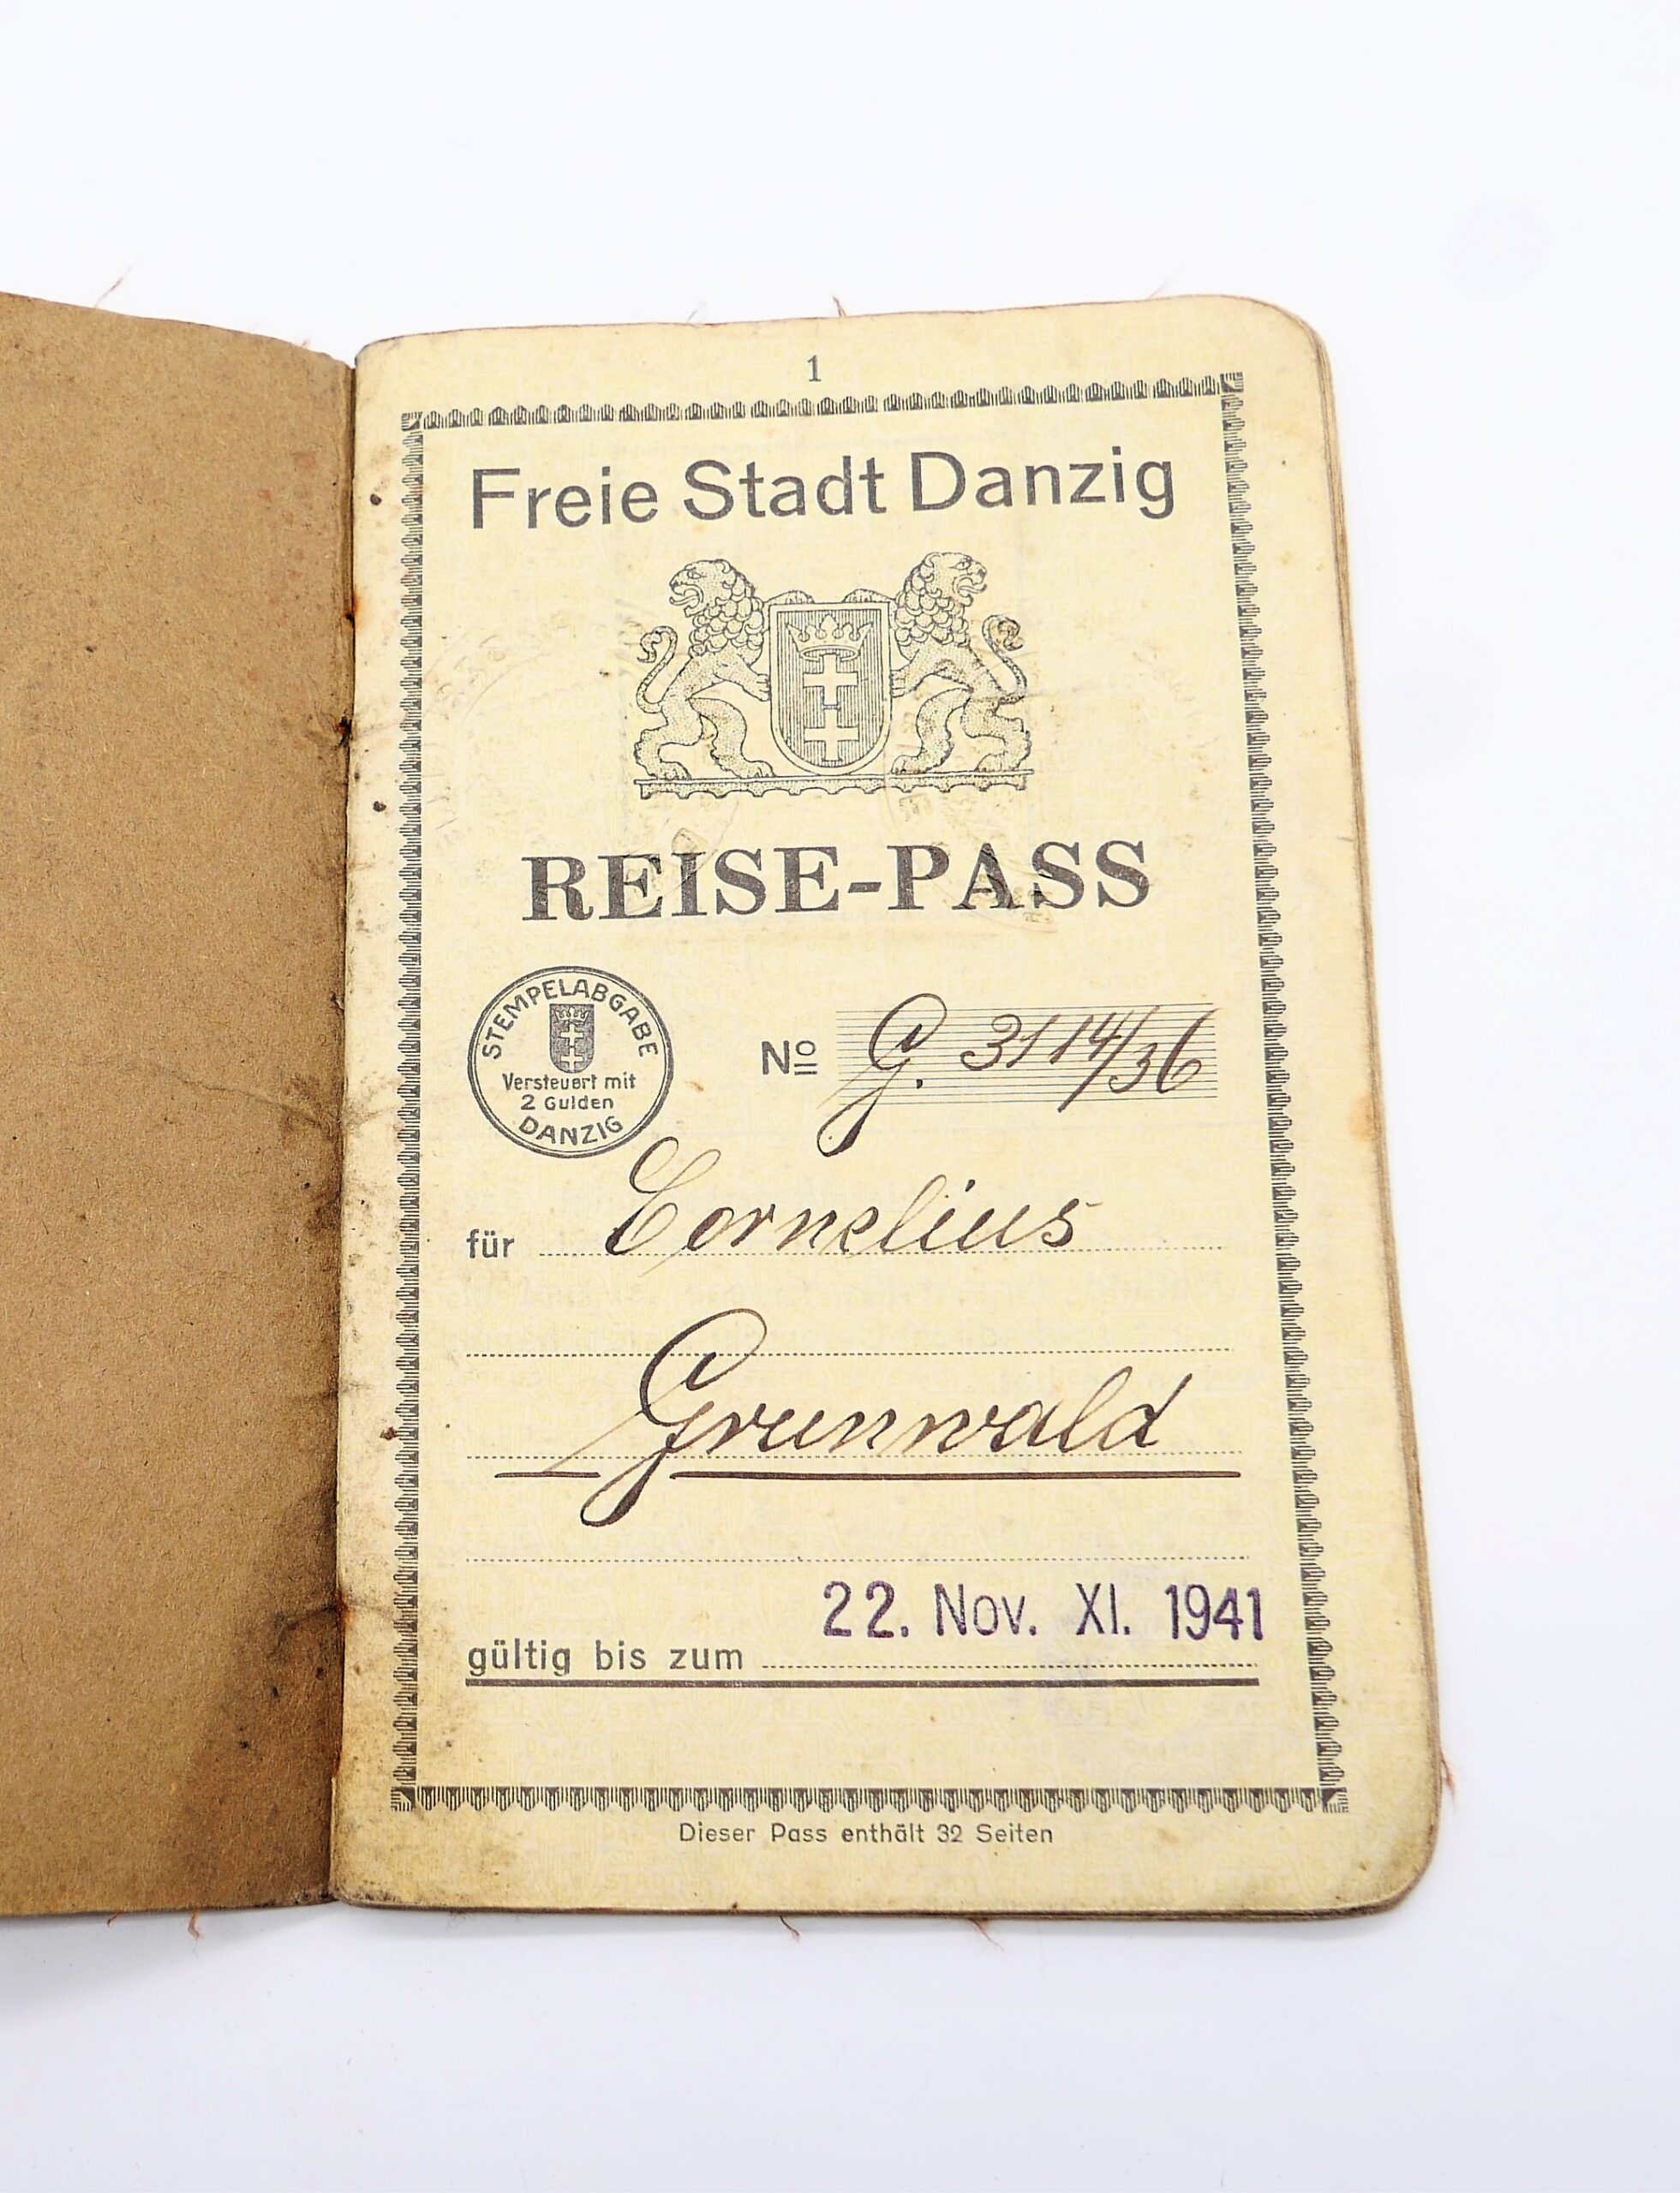 1
Freie Stadt Danzig
REISE-PASS
STEMPELABGABE
Versteuert mit
2 Gulden
DANZIG
Nº G. 3114/36
für Cornelius
Grunwald
22. Nov. XI. 1941
gültig bis zum
Dieser Pass enthält 32 Seiten